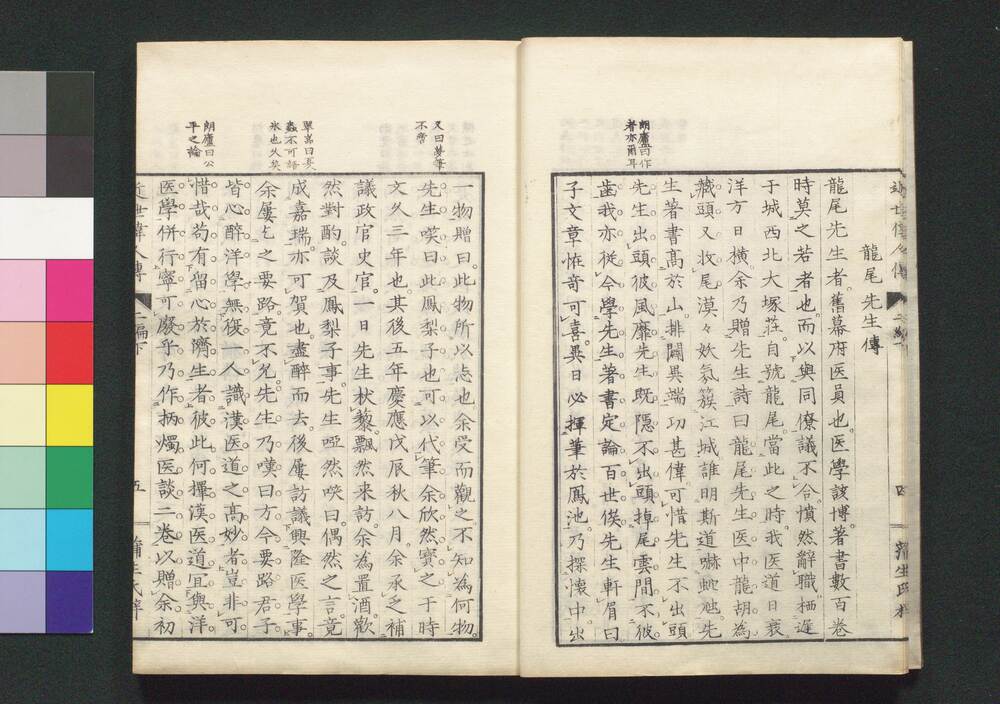 朗廬曰作
者亦爾耳
龍尾先生傳
龍尾先生者舊幕府医員也医學該博著書數百卷
時莫之若者也而以與同僚議不合憤然辭職栖遲
于城西北大塚莊自號龍尾當此之時我医道日衰
洋方日横余乃贈先生詩曰龍尾先生医中龍胡為
藏頭又收尾漠々妖氛簇江城誰明斯道嚇蛇虺先
生著書高於山排闢異端功甚偉可惜先生不出頭
先生出頭彼風靡先生既隱不出頭掉尾雲間不彼
齒我亦從今學先生著書定論百世俟先生軒眉曰
子文章恠奇可喜異日必揮筆於鳳池乃探懷中出
近世偉人傳
四
蒲生氏
又曰夢筆
不啻
曰夏
蟲不可語
氷也久矣
朗廬曰公
平之論
一物贈曰此物所以志也余受而觀之不知為何物
先生唉曰此鳳梨子也可以代筆余欣然寶之于時
文久三年也其後五年慶應戊辰秋八月余承乏補
議政官史官一日先生杖藜飄然来訪余為置酒歡
然對酌談及鳳梨子事先生啞然唉曰偶然之言竟
成嘉瑞亦可賀也盡醉而去後屢訪議興隆医學事
余屢七之要路竟不允先生乃嘆曰方今要路君子
皆心醉洋學無復一人識漢医道之高妙者豈非可
惜哉苟有留心於濟生者彼此何擇漢医道宜與洋
医學併行寧可廢乎乃作柄燭医談二卷以贈余初
近世偉人傳
二編下
五
蒲生氏